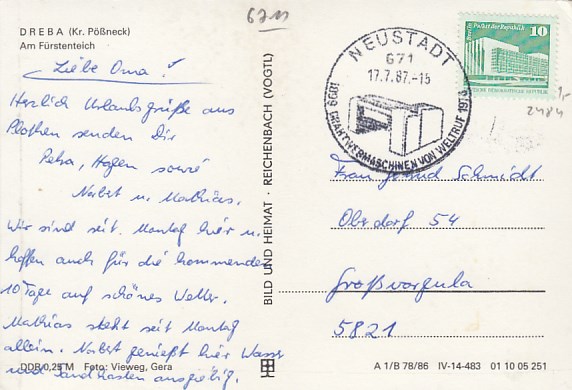 6711
DREBA (Kr. Pößneck)
Am Fürstenteich
Liebe Oma!
Herzlich Urlaubsgrüße aus
Plothen senden Dir
Petra, Hagen sowie
Norbert u. Mathias.
Wir sind seit Montag hier u.
hoffen auch für die kommenden
10 Tage auf schönes Wetter.
Mathias steht seit Montag
allein. Norbert genießt hier Wasser
und Sandkasten ausgiebig.
DDR 0,25 M Foto: Vieweg, Gera
BILD UND HEIMAT · REICHENBACH (VOGTL)
NEUSTADT
671
17.7.87.-15
VERMASCHINEN VON WELTRUF
10
Palast der Republik
DEUTSCHE DEMOKRATISCHE REPUBLIK
2484
Frau Schmidt
Oberdorf 54
Großvargula
5821
A 1/B 78/86 IV-14-483 01 10 05 251